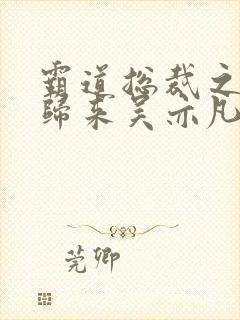 霸道总裁之
归来吴亦凡
莞卿